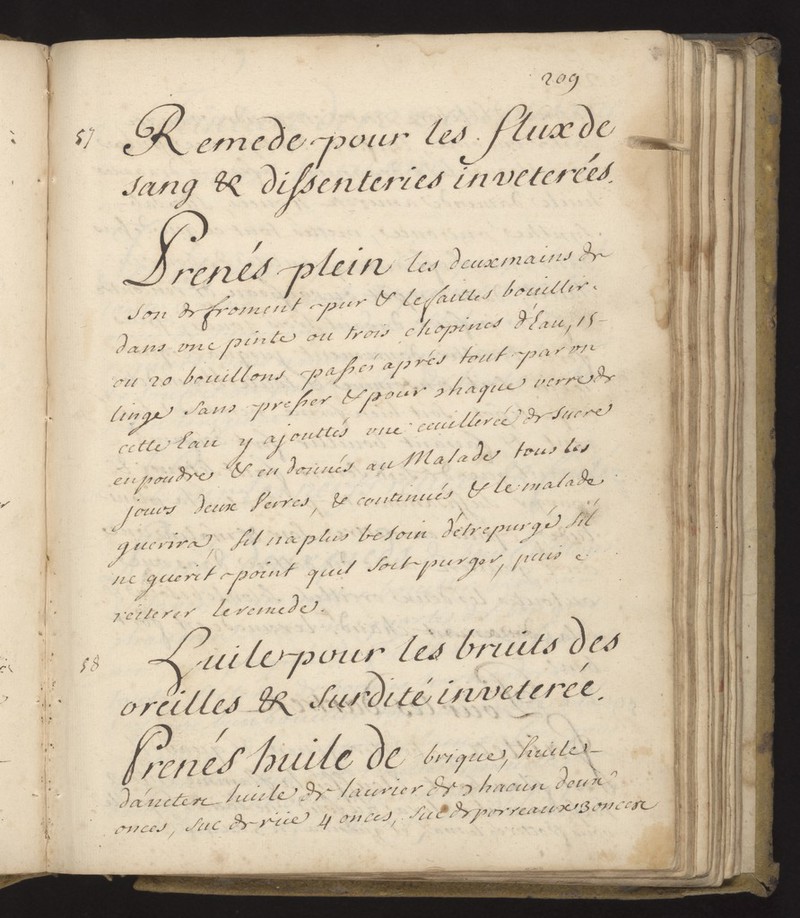 209
57 Remede pour les flux de
sang & dissenteries inveterées.
Prenés plein les deux mains de
son de froment pur & le faittes bouiller
dans une pinte ou trois chopines d'Eau, 15
ou 20 bouillons passés aprés tout par un
linge sans presser & pour chaque verre de
cette Eau y ajouttés une ceuillereé de sucre
en poudre & en donnés au Malade tous les
jours deux Verres, & continués & le malade
guerira, sil na plus besoin d'étre purgé sil
ne guerit point quil soit purger, puis
reiterer le remede.
58 Luile pour les bruits des
oreilles & surdité inveterée.
Prenés huile de brique, huile
d'anetere huile de laurier de chacun deux
onces, suc de rüe 4 onces, suc de porreaux 3 onces